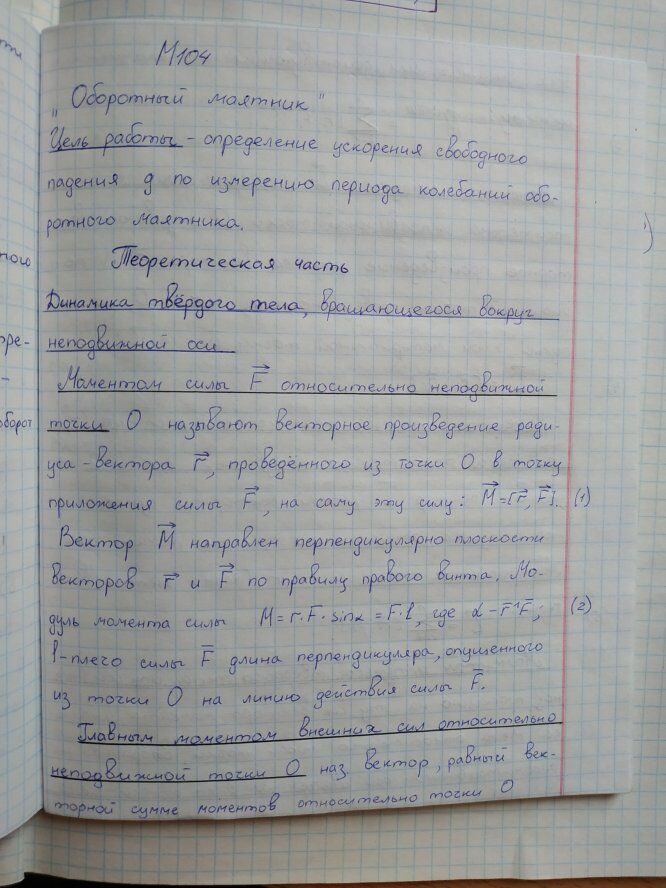 М104
"Оборотный маятник"
Цель работы - определение ускорения свободного
падения g по измерению периода колебаний обо-
ротного маятника.
Теоретическая часть
Динамика твёрдого тела, вращающегося вокруг
неподвижной оси
Моментом силы F⃗ относительно неподвижной
точки О называют векторное произведение ради-
уса-вектора r⃗, проведённого из точки О в точку
приложения силы F⃗, на саму эту силу: M⃗=[r⃗, F⃗]. (1)
Вектор M⃗ направлен перпендикулярно плоскости
векторов r⃗ и F⃗ по правилу правого винта. Мо-
дуль момента силы M=r·F·sinα=F·l, где α-r̅^F̅; (2)
l-плечо силы F̅ длина перпендикуляра, опущенного
из точки О на линию действия силы F̅.
Главным моментом внешних сил относительно
неподвижной точки О наз. вектор, равный век-
торной сумме моментов относительно точки О
ного
оре-
-
оборот